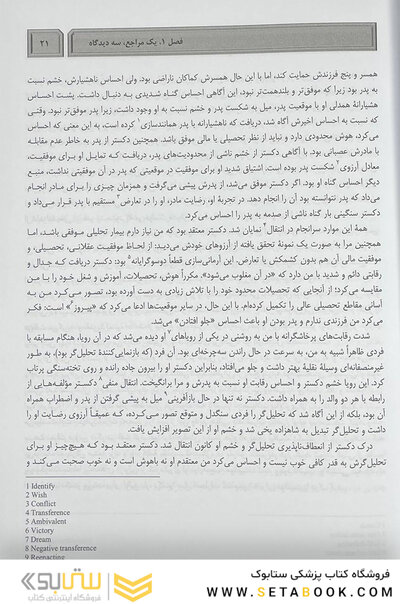 فصل ۱. یک مراجع، سه دیدگاه
۲۱
همسر و پنج فرزندش حمایت کند، اما با این حال همسرش کماکان ناراضی بود. ولی احساس ناهشیارش، خشم نسبت
به پدر بود زیرا که موفق‌تر و بلندهمت‌تر نبود. این آگاهی احساس گناه شدیدی به دنبال داشت. پشت احساس
هشیارانهٔ همدلی او با موقعیت پدر، میل به شکست پدر و خشم نسبت به او وجود داشت، زیرا پدر موفق‌تر نبود. وقتی
که نسبت به احساس اخیرش آگاه شد، دریافت که ناهشیارانه با پدر همانندسازی۱ کرده است، به این معنی که احساس
می‌کرد، هوش محدودی دارد و نباید از نظر تحصیلی یا مالی موفق باشد. همچنین دکستر از پدر به خاطر عدم مقابله
با مادرش عصبانی بود. با آگاهی دکستر از خشم ناشی از محدودیت‌های پدر، دریافت که تمایل او برای موفقیت،
معادل آرزوی۲ شکست پدر بوده است. اشتیاق شدید او برای موفقیت در موقعیتی که پدر در آن موفقیتی نداشت، منبع
دیگر احساس گناه او بود. اگر دکستر موفق می‌شد، از پدرش پیشی می‌گرفت و همزمان چیزی را برای مادر انجام
می‌داد که پدر نتوانسته بود آن را انجام دهد. در تجربهٔ او، رضایت مادر، او را در تعارض۳ مستقیم با پدر قرار می‌داد و
دکستر سنگینی بار گناه ناشی از صدمه به پدر را احساس می‌کرد.
همهٔ این موارد سرانجام در انتقال۴ نمایان شد. دکستر معتقد بود که من نیاز دارم بیمار تحلیلی موفقی باشد، اما
همچنین مرا به صورت یک نمونهٔ تحقق یافته از آرزوهای خودش می‌دید: از لحاظ موفقیت عقلانی، تحصیلی، و
موفقیت مالی آن هم بدون کشمکش یا تعارض. این آرمانی‌سازی قطعاً دوسوگرایانه۵ بود: دکستر دریافت که جدال و
رقابتی دائم و شدید با من دارد که «در آن مغلوب می‌شود». مکرراً هوش، تحصیلات، آموزش و شغل خود را با من
مقایسه می‌کرد؛ از آنجایی که تحصیلات محدود خود را با تلاش زیادی به دست آورده بود، تصور می‌کرد من به
آسانی مقاطع تحصیلی عالی را تکمیل کرده‌ام. با این حال، در سایر موقعیت‌ها ادعا می‌کرد که «پیروز۶» است: فکر
می‌کرد من فرزندی ندارم و پدر بودن او باعث احساس «جلو افتادن» می‌شد.
شدت رقابت‌های پرخاشگرانه با من به روشنی در یکی از رویاهای۷ او دیده می‌شد که در آن رویا، هنگام مسابقه با
فردی ظاهراً شبیه به من، به سرعت در حال راندن سه‌چرخه‌ای بود. آن فرد (که بازنمایی‌کنندهٔ تحلیل‌گر بود)، به طور
غیرمنصفانه‌ای وسیلهٔ نقلیهٔ بهتر داشت و جلو می‌افتاد، بنابراین دکستر او را بیرون جاده رانده و روی تخته‌سنگی پرتاب
کرد. این رویا خشم دکستر و احساس رقابت او نسبت به پدرش و مرا برانگیخت. انتقال منفی۸ دکستر مؤلفه‌هایی از
رابطه با هر دو والد را به همراه داشت. دکستر نه تنها در حال بازآفرینی۹ میل به پیشی گرفتن از پدر و اضطراب همراه
آن بود، بلکه از این آگاه شد که تحلیل‌گر را فردی سنگدل و متوقع تصور می‌کرده، که عمیقاً آرزوی رضایت او را
داشت و تحلیل‌گر تبدیل به شاهزاده یخی شد و خشم او از این تصویر افزایش یافت.
درک دکستر از انعطاف‌ناپذیری تحلیل‌گر و خشم او کانون انتقال شد. دکستر معتقد بود که هیچ‌چیز او برای
تحلیل‌گرش به قدر کافی خوب نیست و احساس می‌کرد من معتقدم او نه باهوش است و نه خوب صحبت می‌کند و
1 Identify
2 Wish
3 Conflict
4 Transference
5 Ambivalent
6 Victory
7 Dream
8 Negative transference
9 Reenacting
فروشگاه کتاب پزشکی ستابوک
WWW.SETABOOK.COM
ستابوک
فروشگاه اینترنتی کتاب